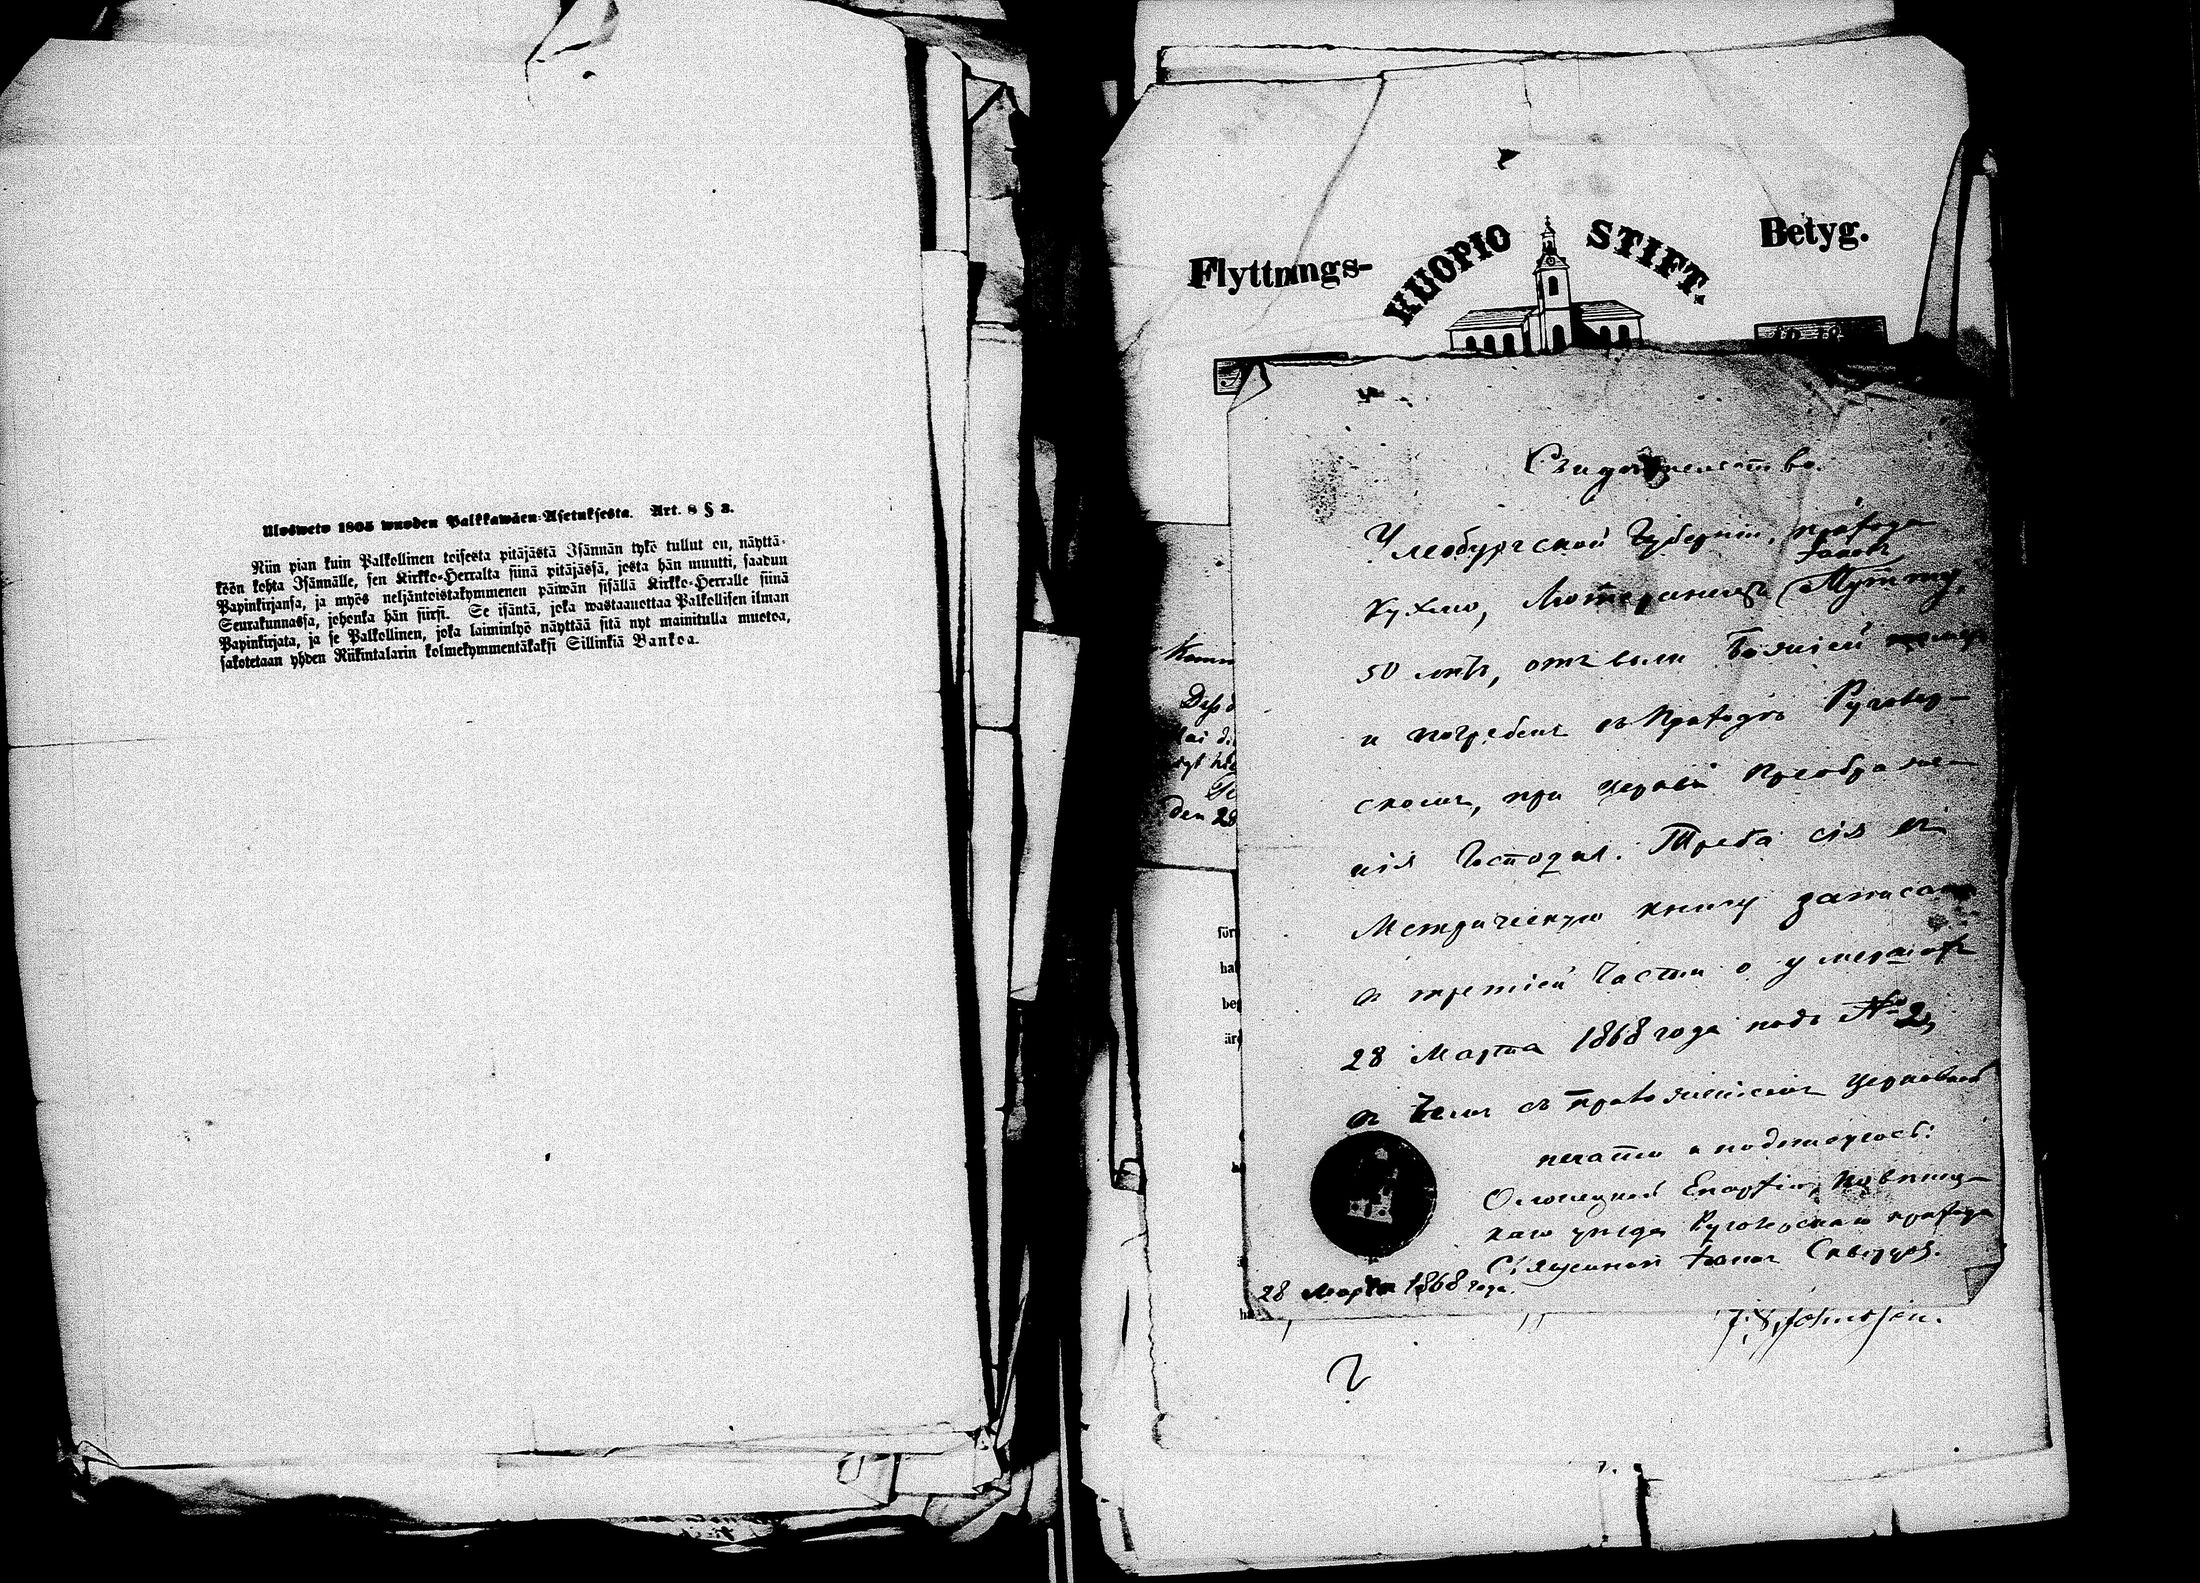 Ulosweto 1805 wuoden Palkkawäen-Asetuksesta. Art. 8 § 3.
Niin pian kuin Palkollinen toisesta pitäjästä Isännän tykö tullut on, näyttä-
köön kohta Isännälle, sen Kirkko-Herralta siinä pitäjässä, josta hän muutti, saadun
Papinkirjansa, ja myös neljäntoistakymmenen päiwän sisällä Kirkko-Herralle siinä
Seurakunnassa, johonka hän siirsi. Se isäntä, joka wastaanottaa Palkollisen ilman
Papinkirjata, ja se Palkollinen, joka laiminlyö näyttää sitä nyt mainitulla muotoa,
sakotetaan yhden Riikintalarin kolmekymmentäkaksi Sillinkiä Bankoa.
Flyttnings-
KUOPIO STIFT.
Betyg.
Свидѣтельство.
Улеобургской Губерніи, прихода
Кухмо, Лютеранинъ
50 лѣтъ, отъ воли Божіей
и погребенъ въ приходѣ Ругозер-
скомъ, при церкви Преображе-
нія Господня. Треба сія въ
Метрическую книгу записана
въ третіей части о умершихъ
28 Марта 1868 года подъ № 2,
въ чемъ съ приложеніемъ церковной
печати и подпишуюсь:
Олонецкой Епархіи, Повѣнец-
каго уѣзда Ругозерскаго прихода
Священникъ Іоаннъ
28 Марта 1868 года.
den 28
för